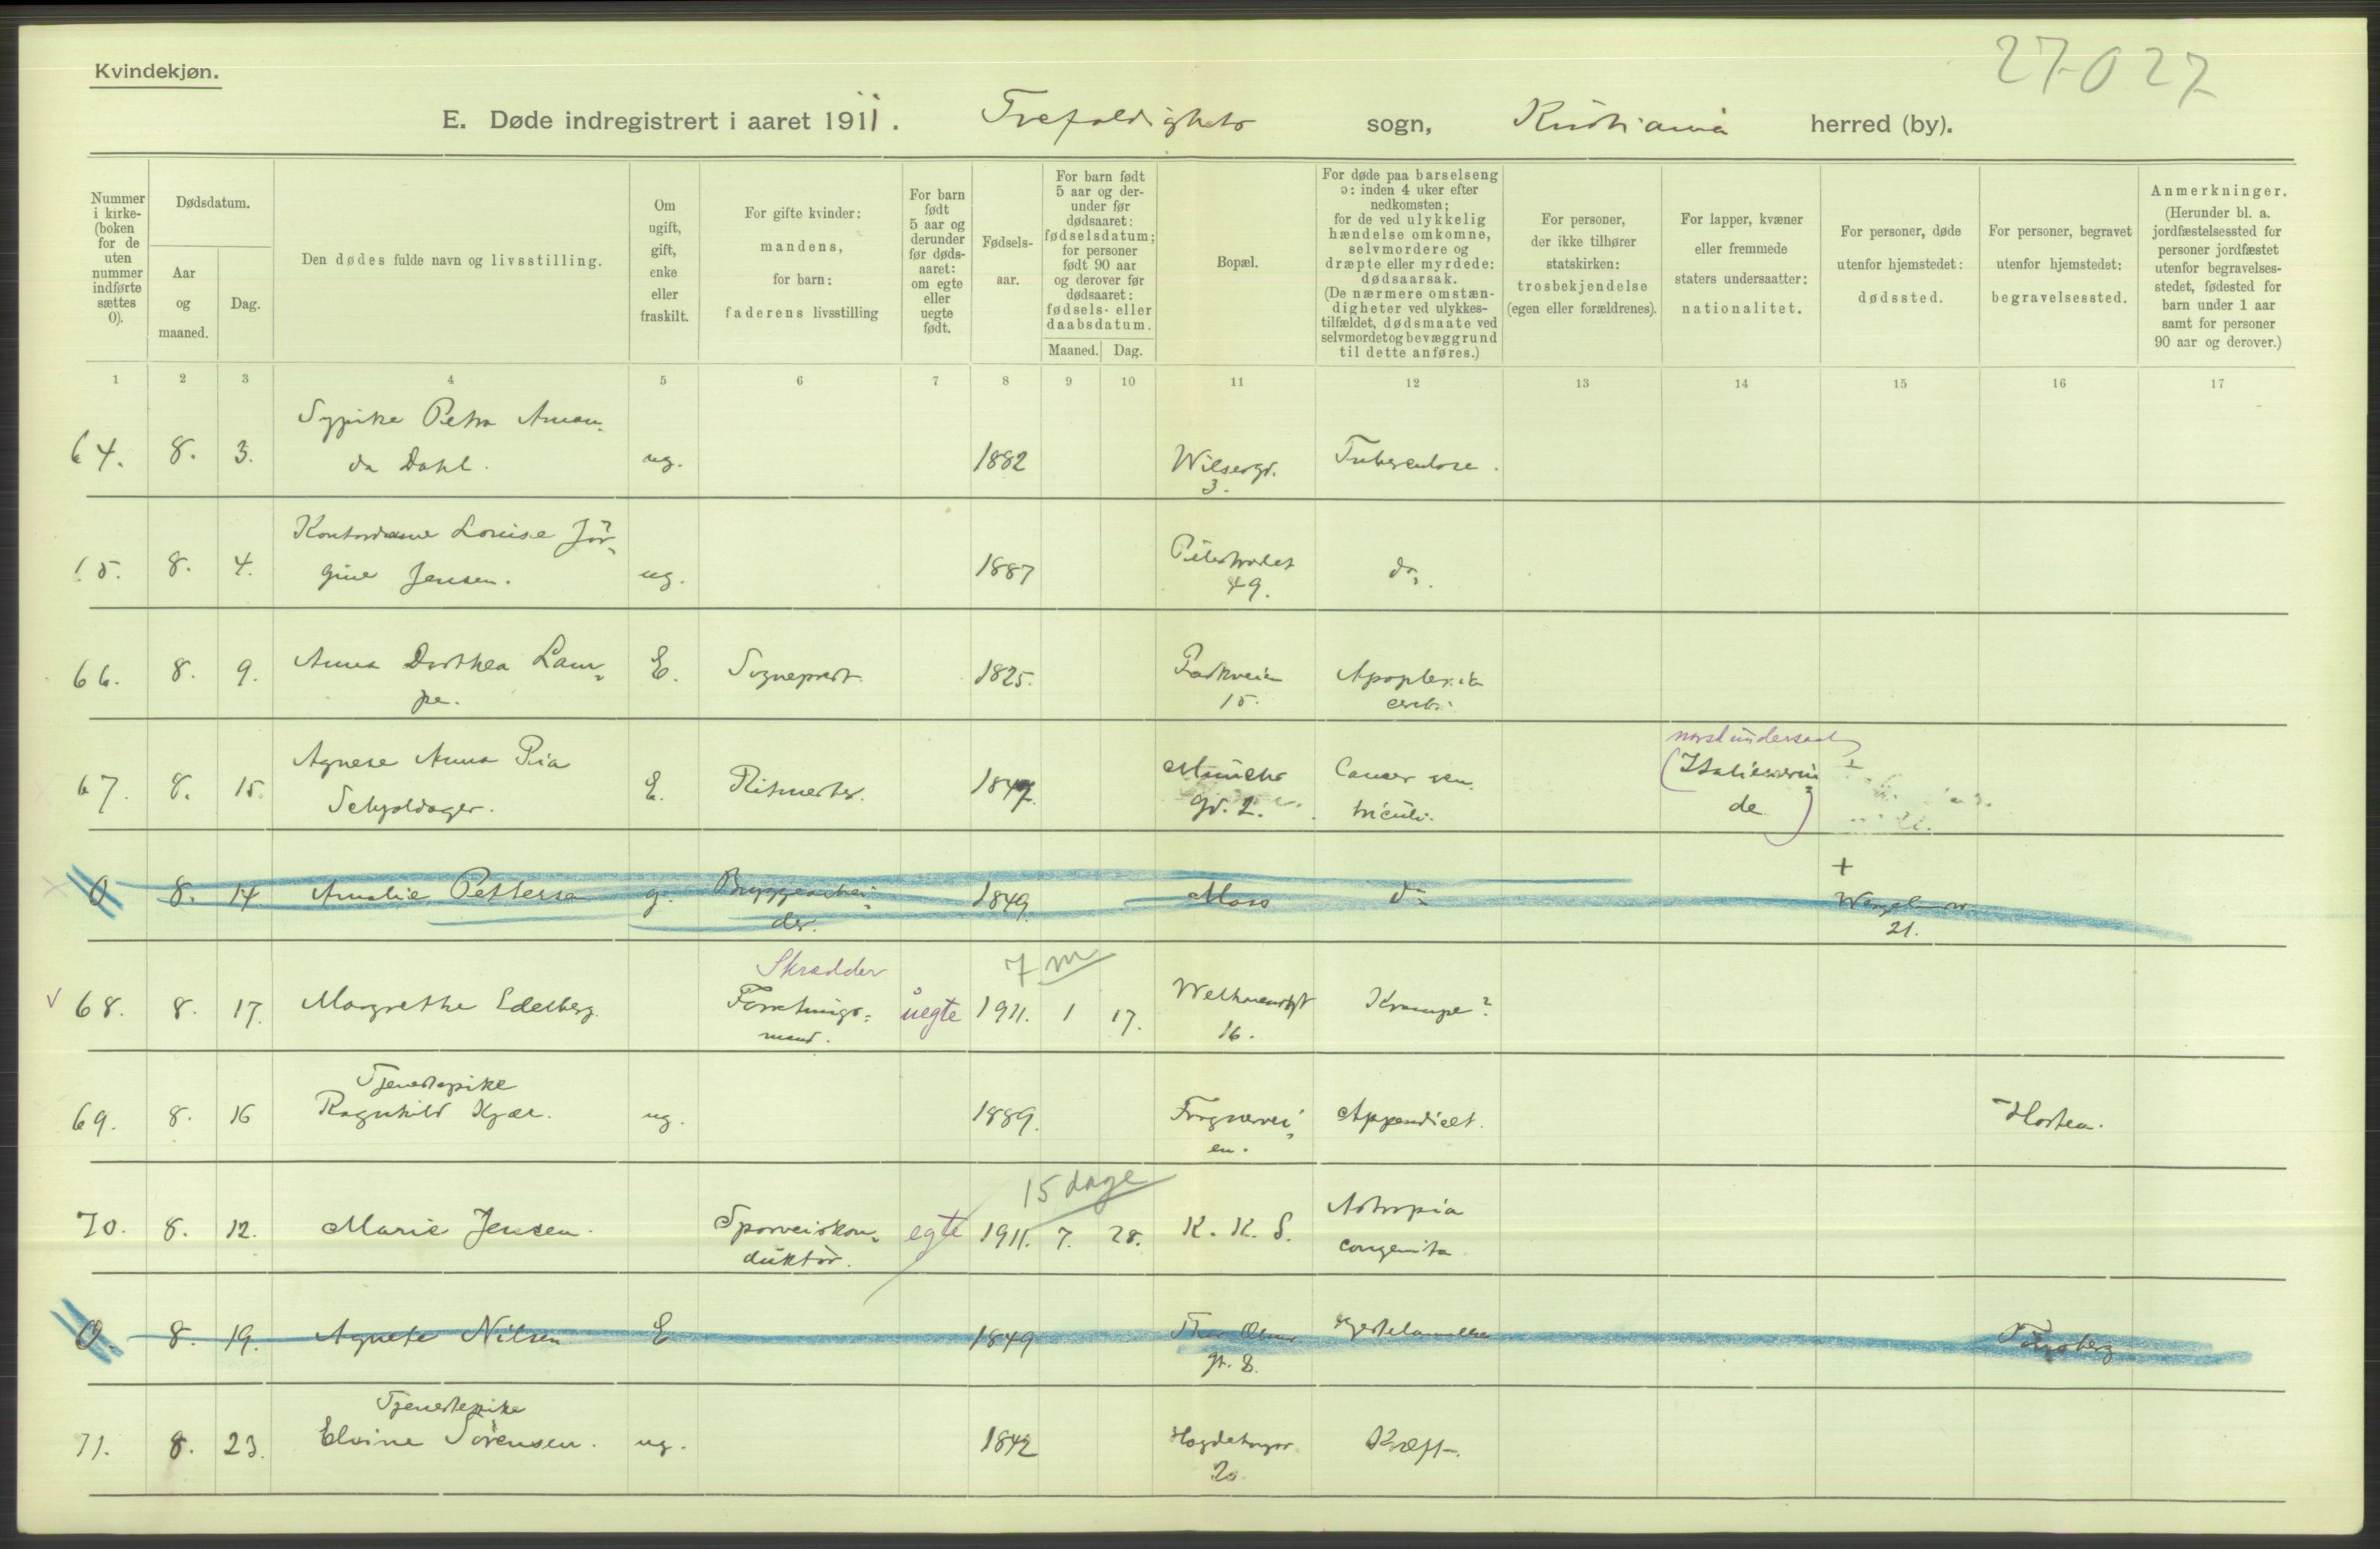 27027
Kvindekjøn.
E. Døde indregistrert i aaret 1911. Trefoldigheds sogn, Kristiania herred (by).
Nummer i kirke- (boken for de uten nummer indførte sættes 0).
Dødsdatum.
Aar og maaned.
Dag.
Den dødes fulde navn og livsstilling.
Om ugift, gift, enke eller fraskilt.
For gifte kvinder: mandens, for barn: faderens livsstilling
For barn født 5 aar og derunder før døds- aaret: om egte eller uegte født.
Fødsels- aar.
For barn født 5 aar og der- under før dødsaaret: fødselsdatum; for personer født 90 aar og derover før dødsaaret: fødsels- eller daabsdatum.
Maaned. Dag.
Bopæl.
For døde paa barselseng ɔ: inden 4 uker efter nedkomsten; for de ved ulykkelig hændelse omkomne, selvmordere og dræpte eller myrdede: dødsaarsak. (De nærmere omstæn- digheter ved ulykkes- tilfældet, dødsmaate ved selvmordet og bevæggrund til dette anføres.)
For personer, der ikke tilhører statskirken: trosbekjendelse (egen eller forældrenes).
For lapper, kvæner eller fremmede staters undersaatter: nationalitet.
For personer, døde utenfor hjemstedet: dødssted.
For personer, begravet utenfor hjemstedet: begravelsessted.
Anmerkninger. (Herunder bl. a. jordfæstelsessted for personer jordfæstet utenfor begravelses- stedet, fødested for barn under 1 aar samt for personer 90 aar og derover.)
1 2 3 4 5 6 7 8 9 10 11 12 13 14 15 16 17
Sypike Petra Aman-
64. 8. 3. da Dahl. ug. 1882 Tuberculose.
3.
Kontordame Louise Jör-
8. 4. gine Jensen. ug. 1887 Pilestrædet do.
49.
66. 8. 9. Anna Dorthea Lam- E. Sogneprest. 1825. Parkveien Apoplexia
pe. 15. cerebri.
norsk undersaat
Agnese Anna Pia Munchs Cancer ven- (Italienerin-
67. 8. 15. Schjoldager. E. Ritmester. 1847. gd. 2. triculi. de)
+
0 8. 14 Amalie Pettersen g. Bryggearbei- 1849. Moss do
der. 21.
Skrædder 7 m
68. 8. 17. Margrethe Edelberg. Forretnings- uegte 1911. 1 17. Welhavensgt Krampe?
mand. 16.
Tjenestepike
69. 8. 16 Ragnhild Kjær. ug. 1889. Frognervei- Appendicit. Horten.
en.
15 dage
70. 8. 12. Marie Jensen. Sporveiskon- egte 1911. 7. 28. K. K. S. Astropia
duktör. congenita
0. 8. 19. Agnete Nilsen E 1849 Thor Olsens Hjertelammelse Tönsberg
gt. 8.
Tjenestepike
71. 8. 23. Elvine Sörensen. ug. 1842 Kræft.
20